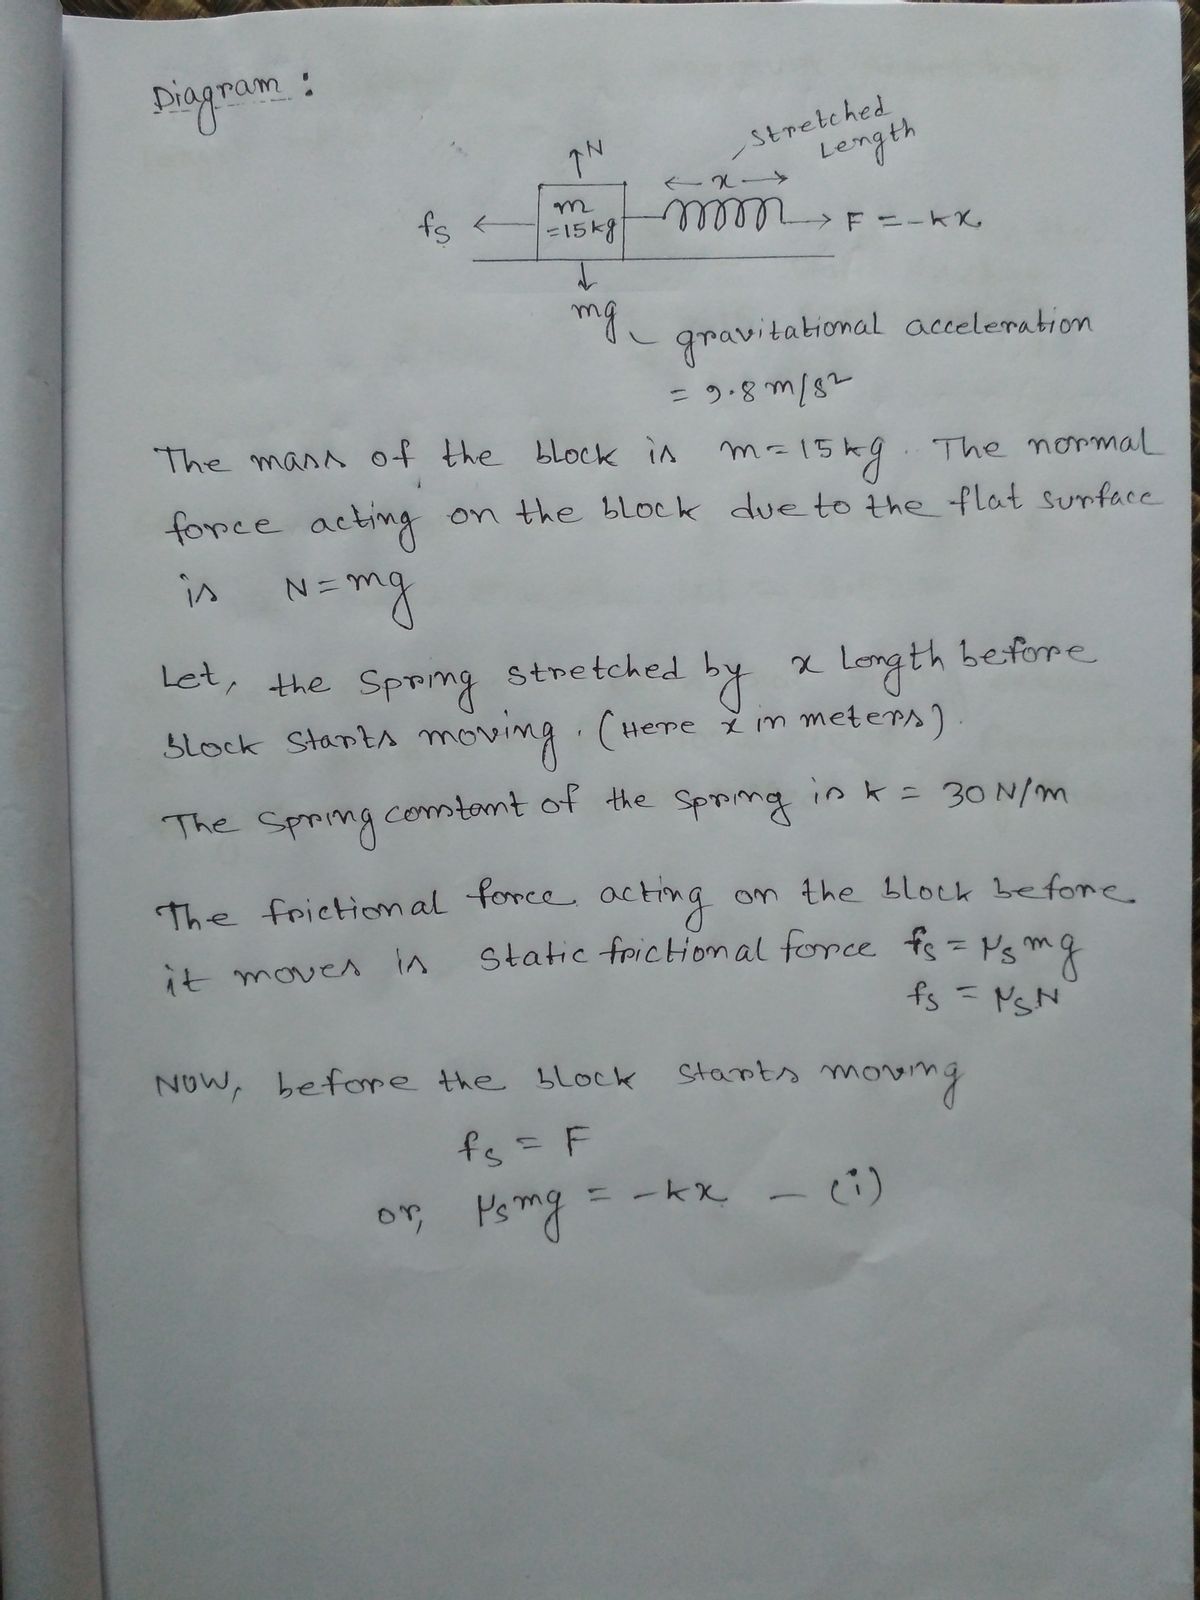 Diagram :
stretched
Length
↑N
← x →
m
= 15 kg
fs ←
→ F = -kx.
↓
mg
gravitational acceleration
= 9.8 m/s²
The mass of the block is m = 15 kg. The normal
force acting on the block due to the flat surface
is N = mg
Let, the spring stretched by x Length before
block starts moving. (Here x in meters).
The spring constant of the spring is k = 30 N/m
The frictional force acting on the block before
it moves is static frictional force fs = μs mg
fs = μsN
Now, before the block starts moving
fs = F
or, μs mg = -kx — (i)